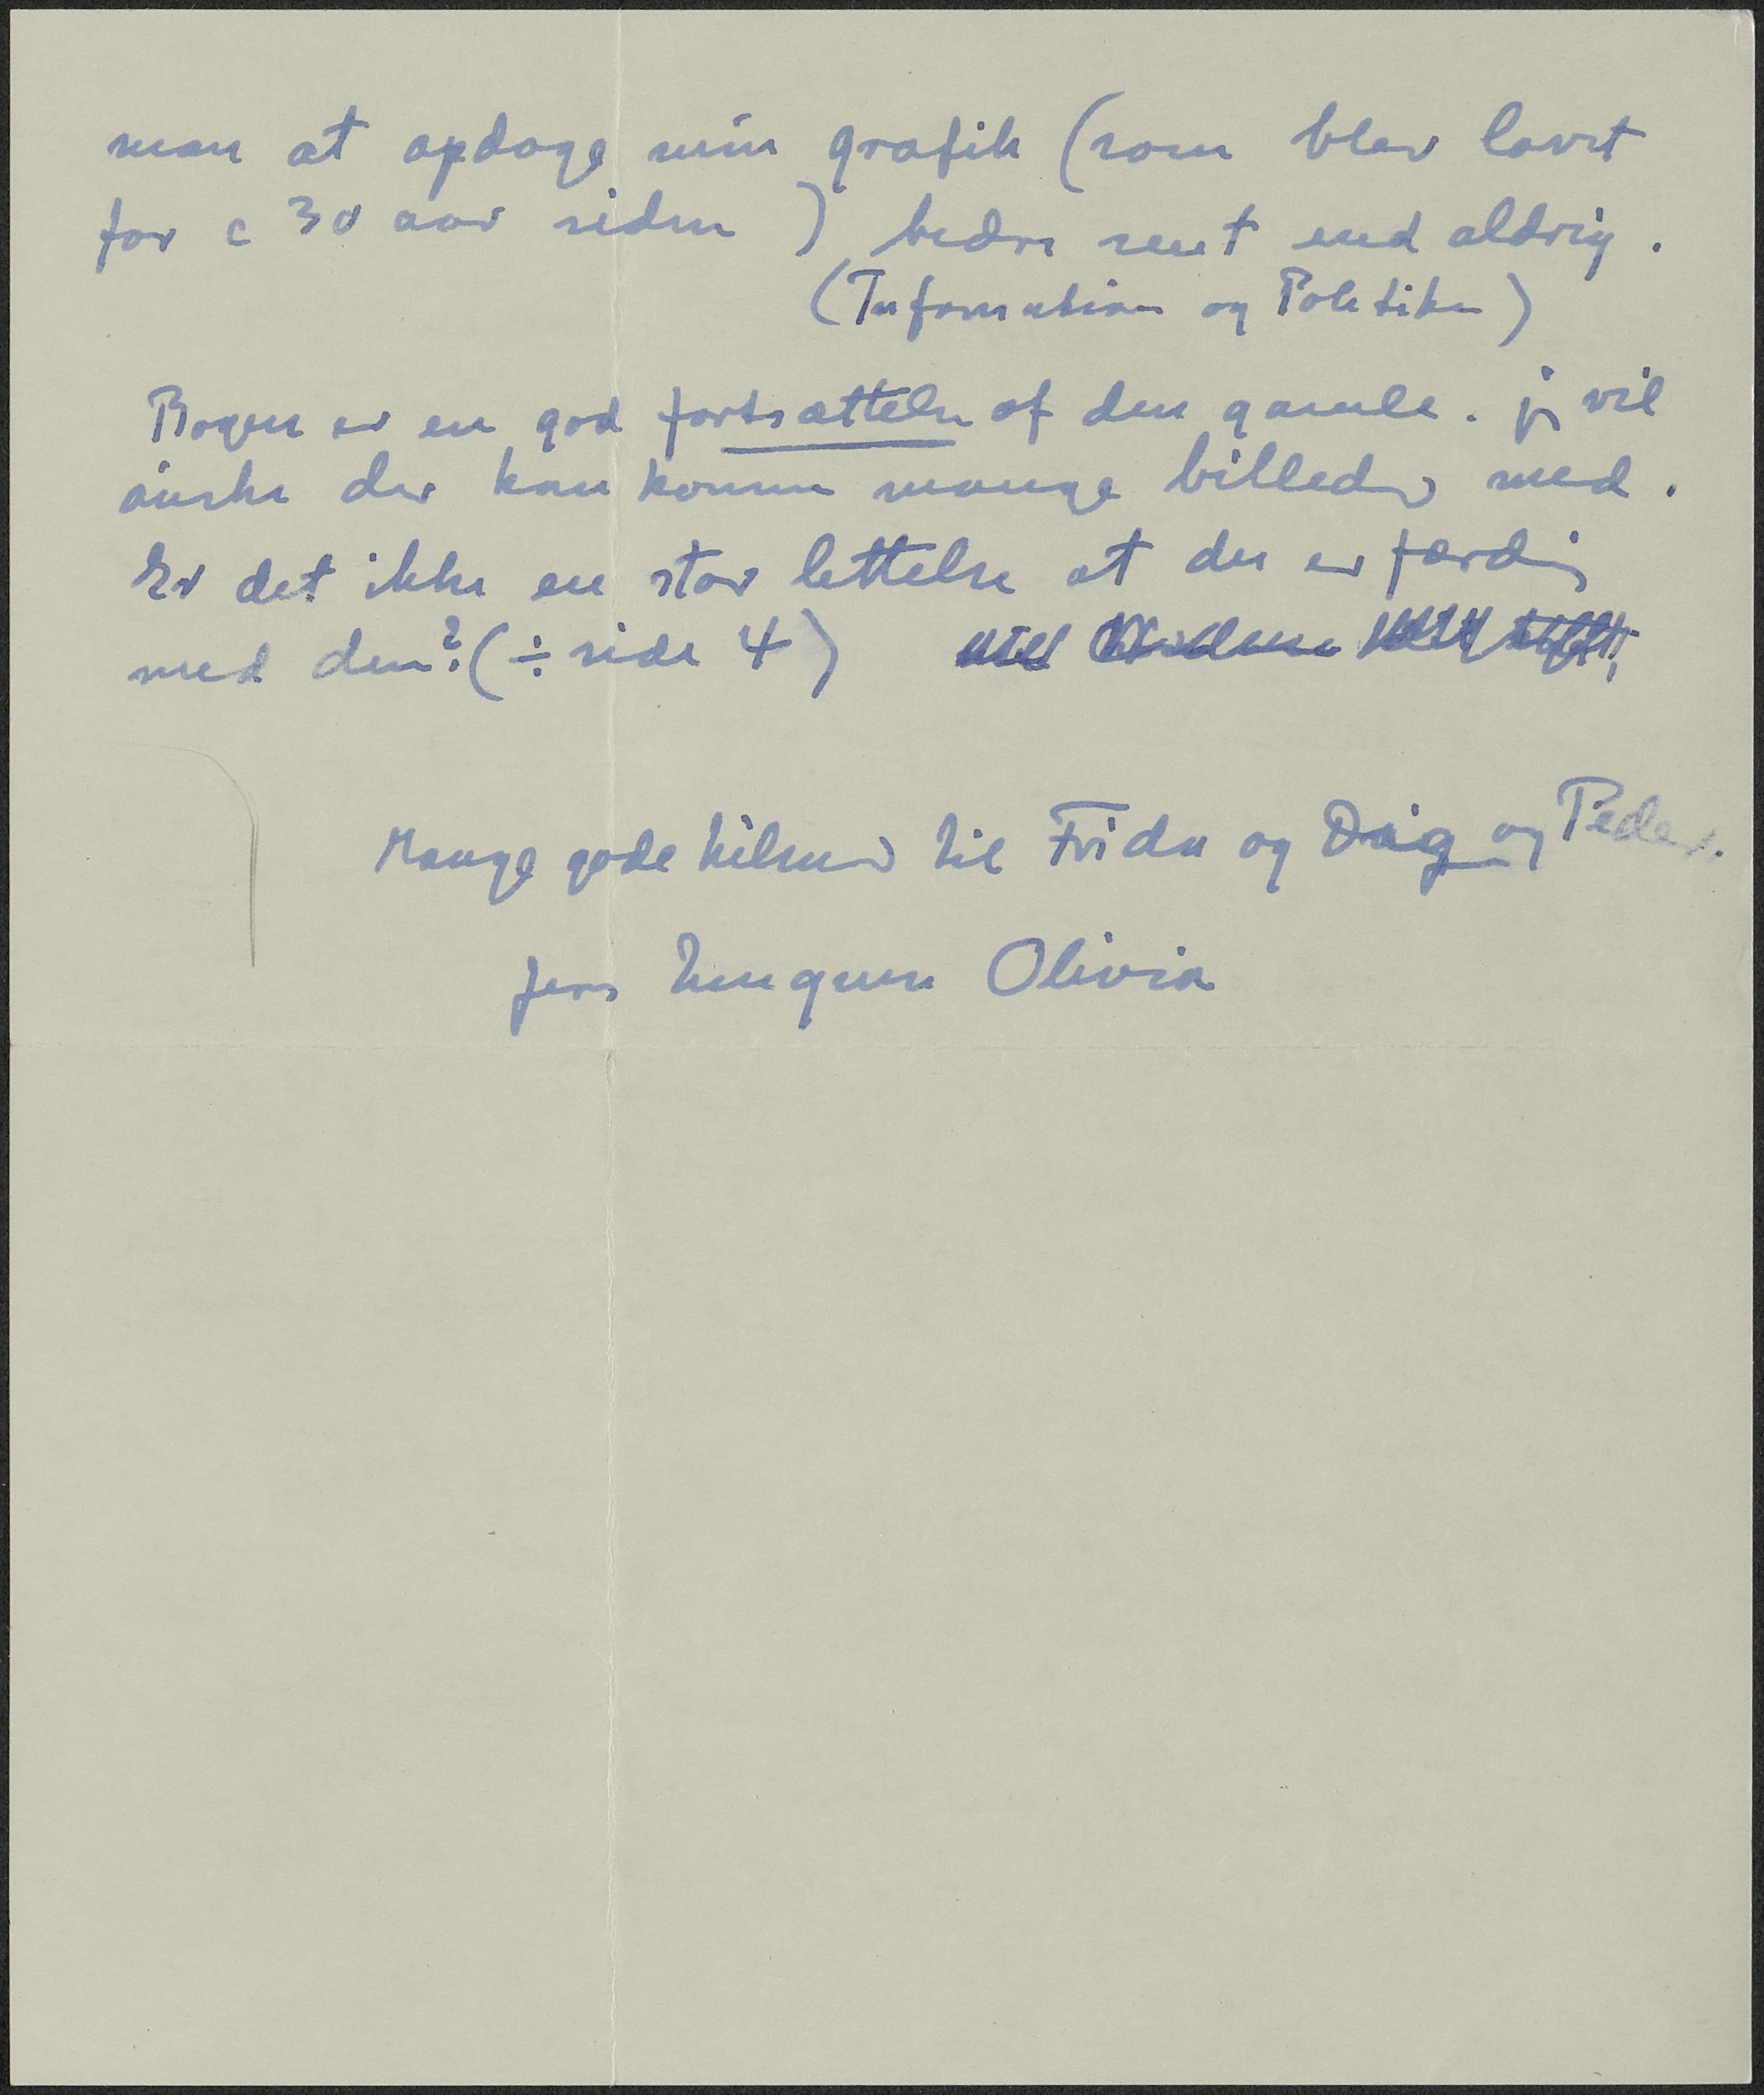 man at opdage min grafik (som blev lavet
for c 30 aar siden) bedre sent end aldrig.
(Information og Politiken)
Bogen er en god fortsættelse af den gamle. jeg vil
önske der kan komme mange billeder med.
Er det ikke en stor lettelse at du er færdig
med den? (÷ side 4)
Mange gode hilsener til Frida og Dag og Peder.
fra Olivia